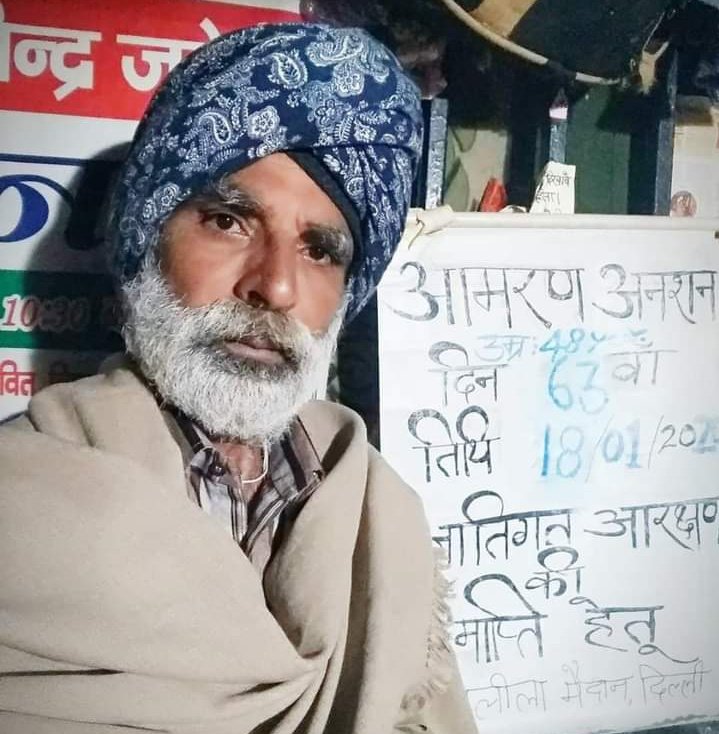 न्द्र
10:30
आमरण अनशन
उम्र: 48
दिन 63 वाँ
तिथि 18/01/202
जातिगत आरक्षण
की
माप्ति हेतू
लीला मैदान, दिल्ली